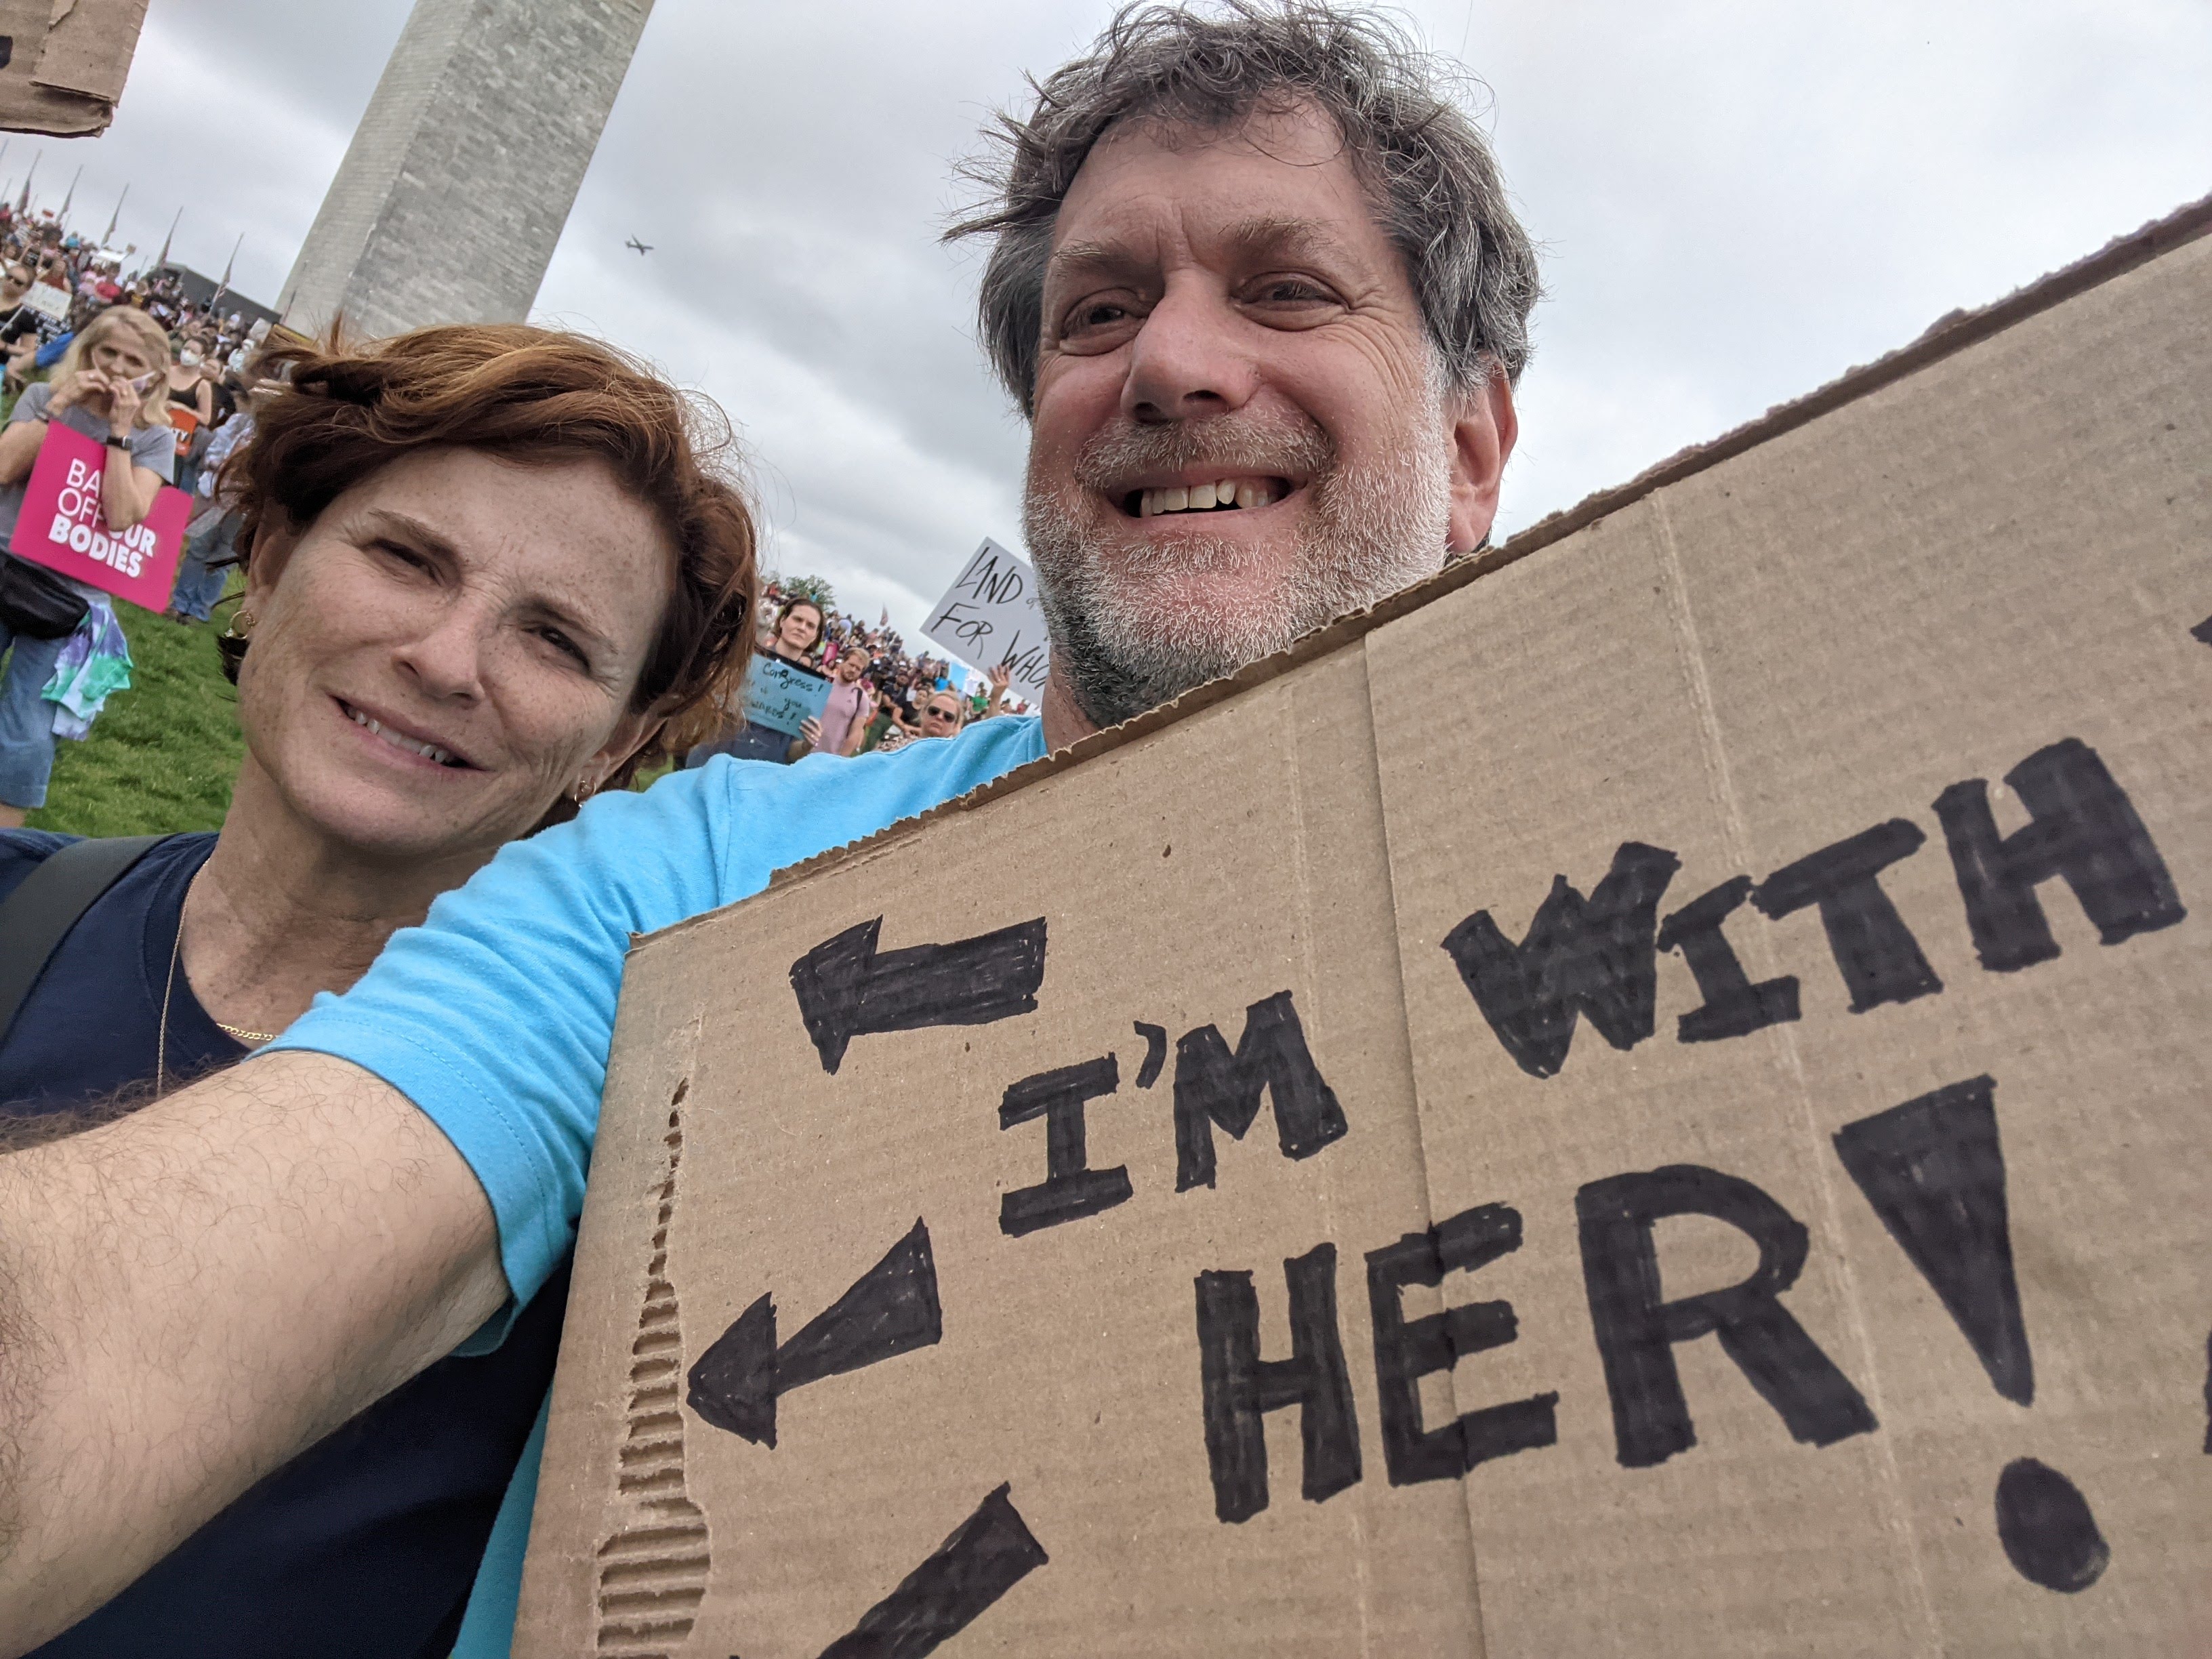 BA
OFF OUR
BODIES
LAND
FOR WHO
Congress!
you
I'M WITH
HER!